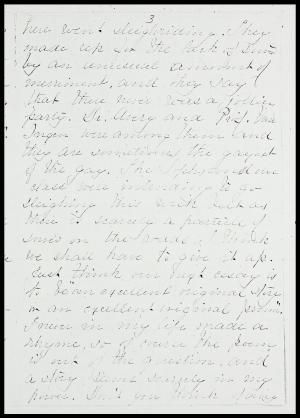 3
here went sleighriding. They
made up for the lack of snow
by an unusual amount of
merriment, and they say
that there never was a jollier
party. Dr. Avery and Prof. Van
Ingen were among them and
they are sometimes the gayest
of the gay. The Sophomore
class were intending to go
sleighing this week but as
there is scarcely a particle of
snow on the roads I think
we shall have to give it up.
Just think our next essay is
to be "an excellent original story
or an excellent original poem".
I never in my life made a
rhyme, so of course the poem
is out of the question, and
a story seems scarcely in my
power. Don't you think